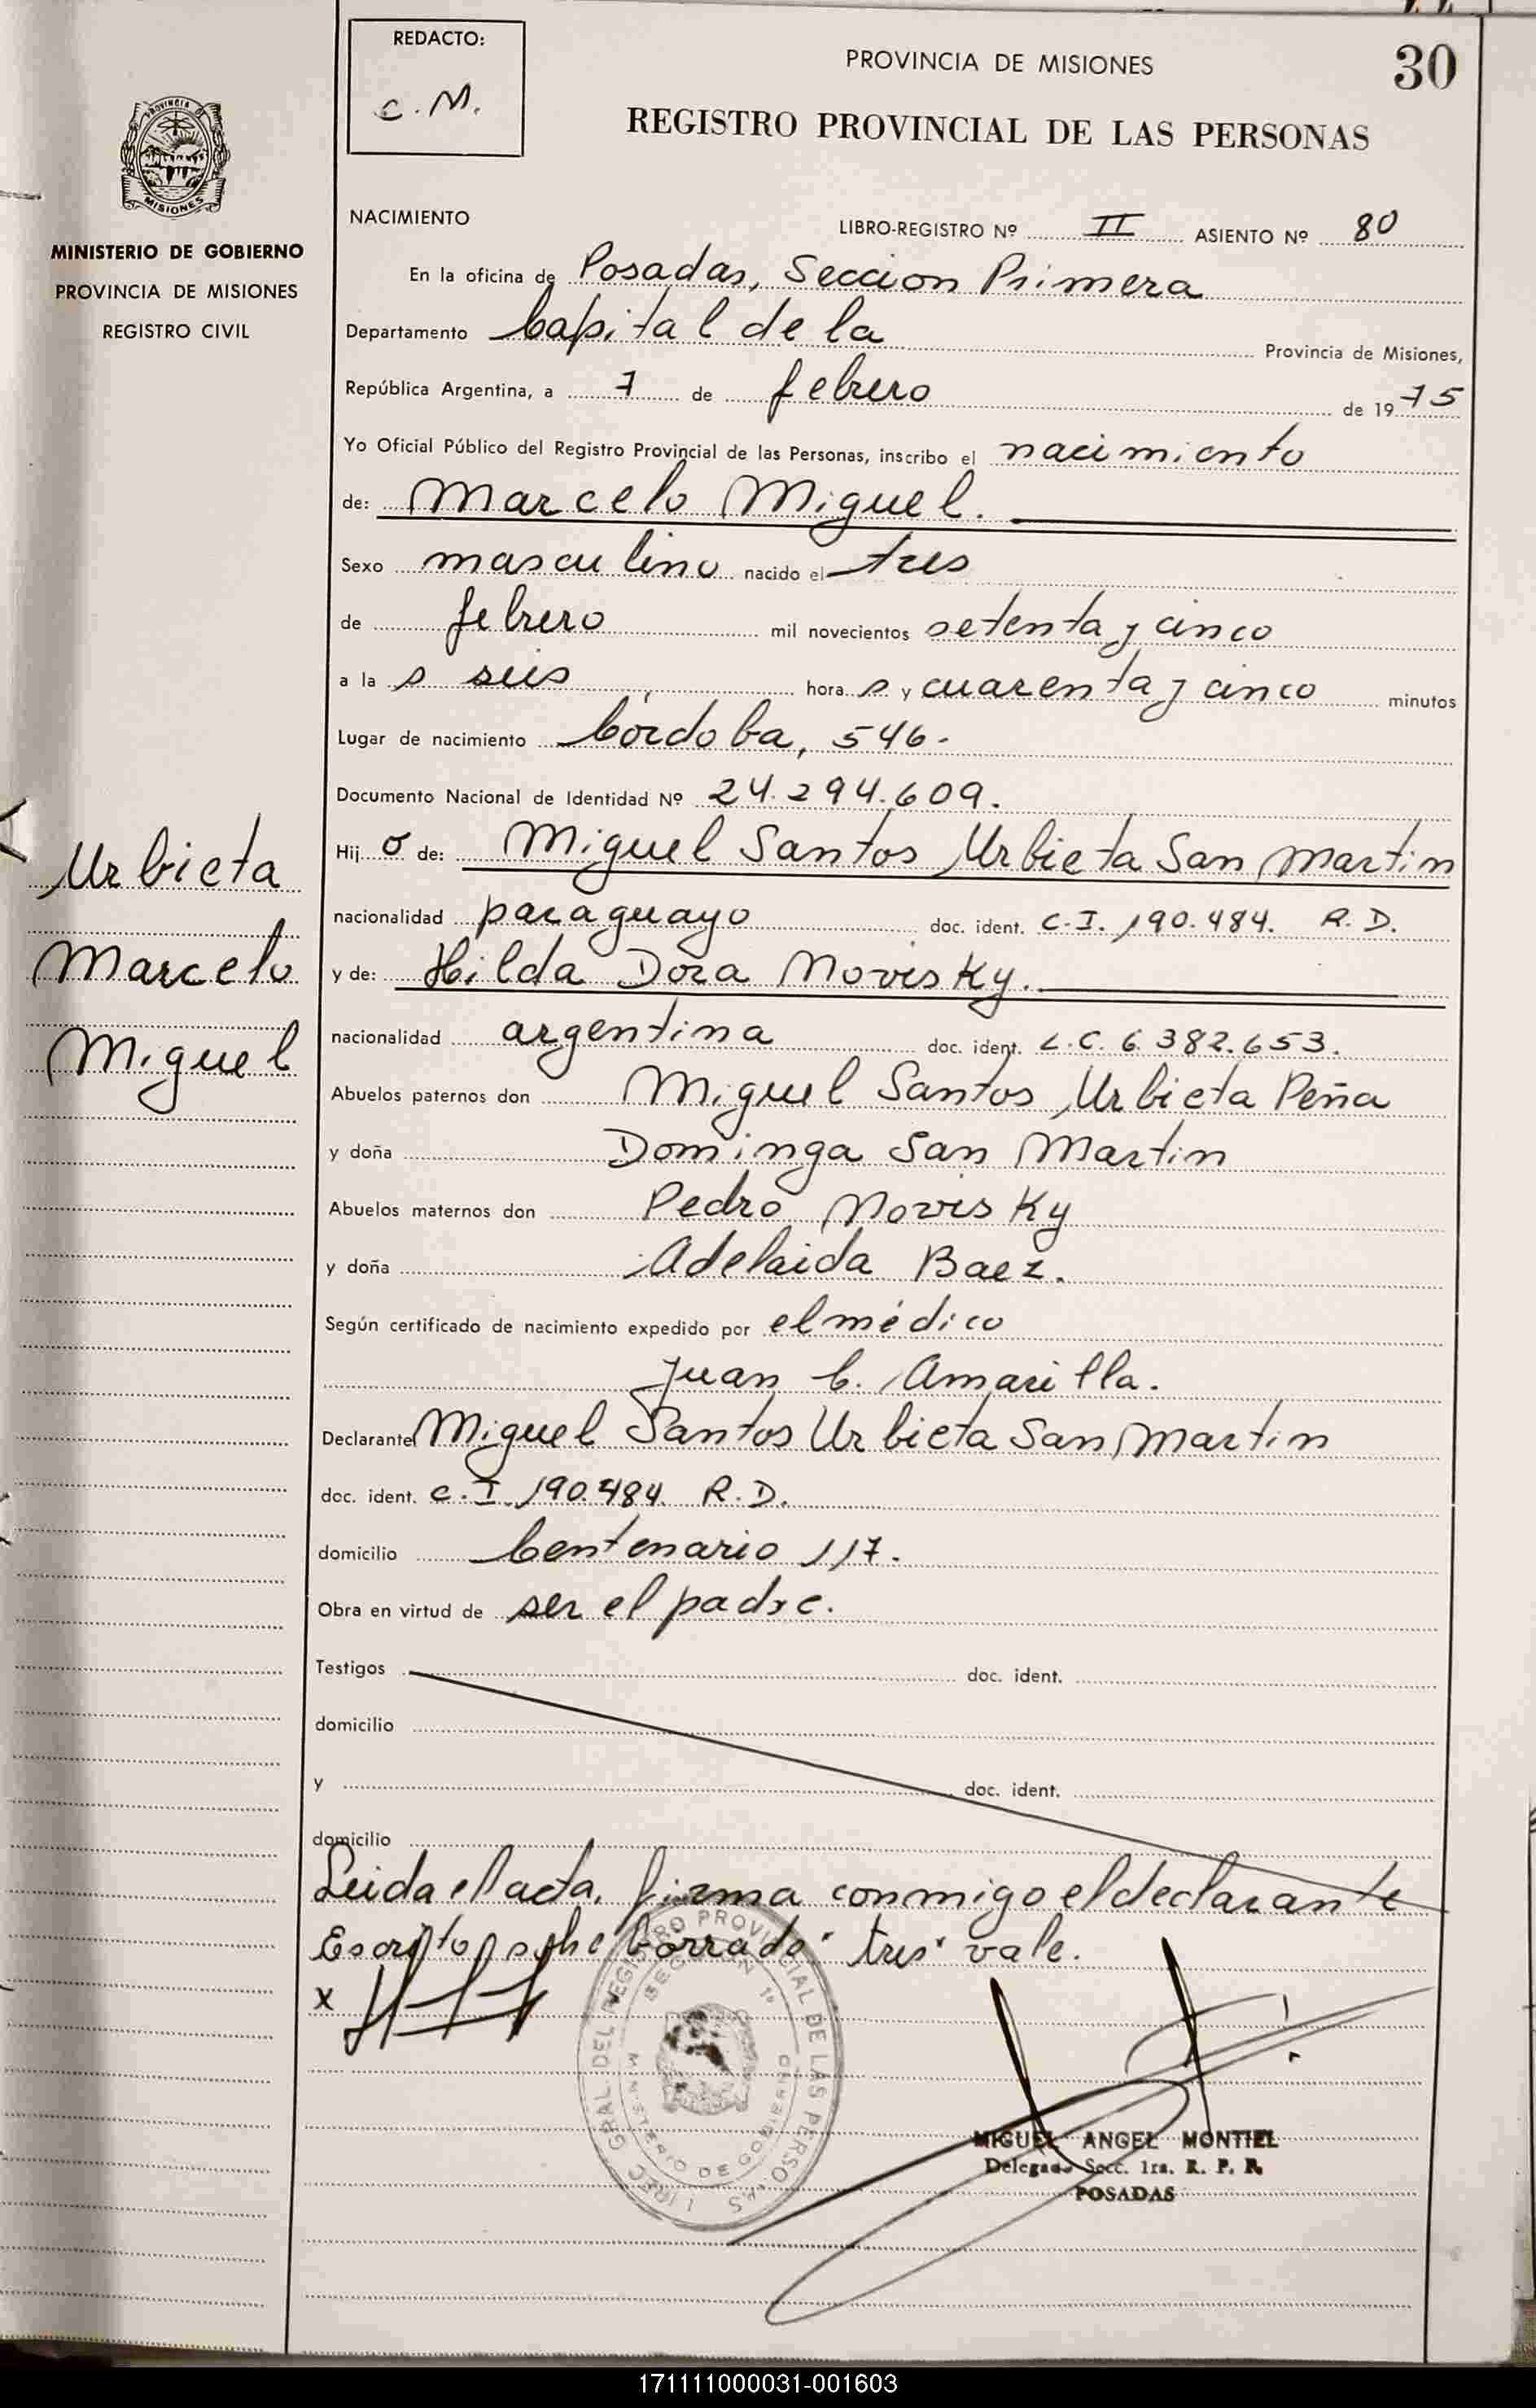 REDACTO:
C. M.
PROVINCIA DE MISIONES
30
REGISTRO PROVINCIAL DE LAS PERSONAS
PROVINCIA
MISIONES
MINISTERIO DE GOBIERNO
PROVINCIA DE MISIONES
REGISTRO CIVIL
NACIMIENTO
LIBRO-REGISTRO Nº II ASIENTO Nº 80
En la oficina de Posadas, Seccion Primera
Departamento Capital de la Provincia de Misiones,
República Argentina, a 7 de febrero de 1975
Yo Oficial Público del Registro Provincial de las Personas, inscribo el nacimiento
de: Marcelo Miguel.
Sexo masculino nacido el tres
de febrero mil novecientos setenta y cinco
a la s seis hora s y cuarenta y cinco minutos
Lugar de nacimiento Córdoba, 546.
Documento Nacional de Identidad Nº 24.294.609.
Urbieta
Marcelo
Miguel
Hij o de: Miguel Santos Urbieta San Martin
nacionalidad paraguayo doc. ident. C.I. 190.484. R.D.
y de: Hilda Dora Novisky.
nacionalidad argentina doc. ident. L.C. 6.382.653.
Abuelos paternos don Miguel Santos Urbieta Peña
y doña Dominga San Martin
Abuelos maternos don Pedro Novisky
y doña Adelaida Baez.
Según certificado de nacimiento expedido por el médico
Juan C. Amarilla.
Declarante Miguel Santos Urbieta San Martin
doc. ident. C.I. 190.484. R.D.
domicilio Centenario 117.
Obra en virtud de ser el padre.
Testigos doc. ident.
domicilio
y doc. ident.
domicilio
Leida el acta, firma conmigo el declarante
Escrito sobre borrado "tres" vale.
x
DIREC. GRAL. DEL REGISTRO PROVINCIAL DE LAS PERSONAS
SECCION 1º
MINISTERIO DE GOBIERNO
MIGUEL ANGEL MONTIEL
Delegado Secc. 1ra. R. P. P.
POSADAS
171111000031-001603